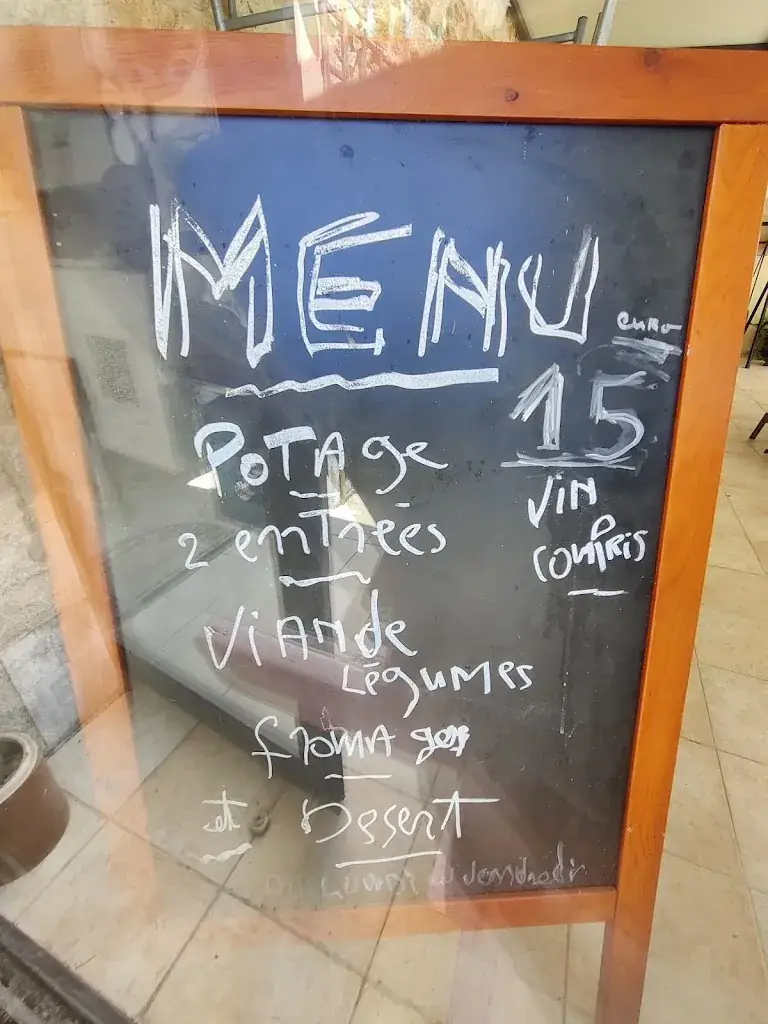 MENU
euro
15
VIN
COMPRIS
POTAge
2 entrées
VIANde
LégUMes
fromages
et Desert
Du Lundi au vendredi